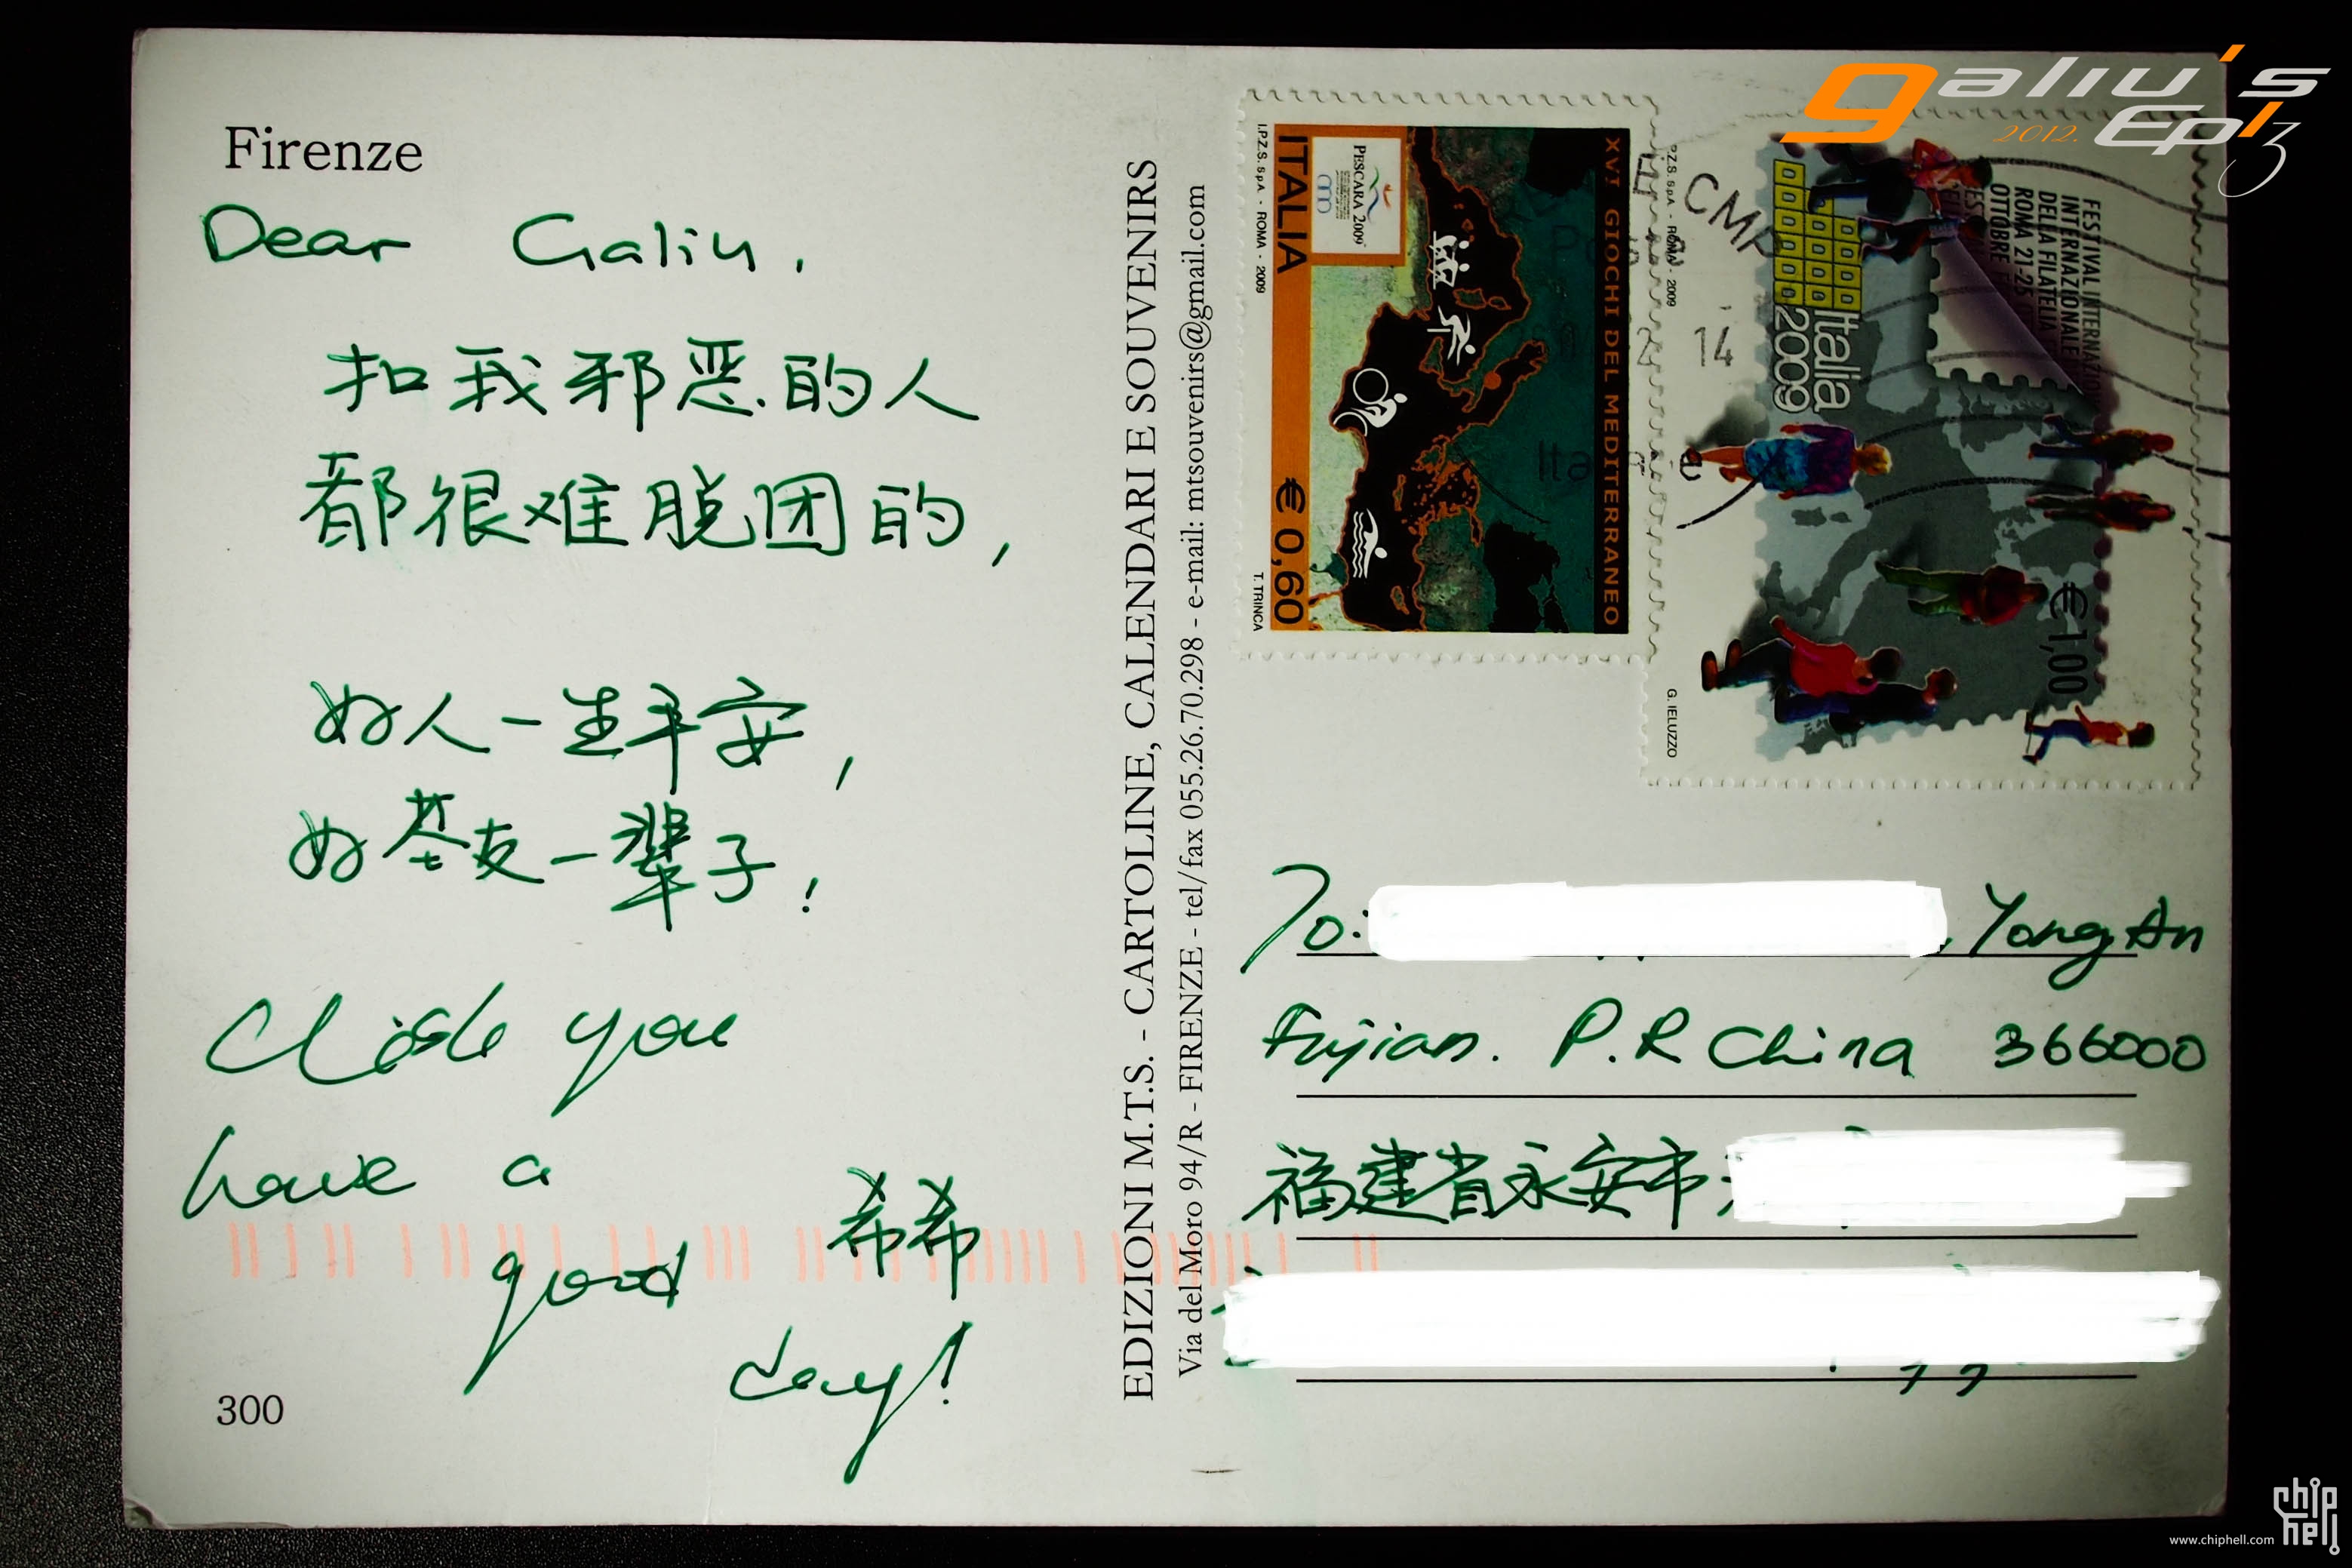 Firenze
Dear Galiu,
扣我邪恶的人
都很难脱团的,
好人一生平安,
好基友一辈子!
Wish you
have a
good
希希
day!
300
EDIZIONI M.T.S. - CARTOLINE, CALENDARI E SOUVENIRS
Via del Moro 94/R - FIRENZE - tel/fax 055.26.70.298 - e-mail: mtsouvenirs@gmail.com
I.P.Z.S. S.p.A. - ROMA - 2009
T. TRINCA
ITALIA
€ 0,60
PESCARA 2009
XVI GIOCHI DEL MEDITERRANEO
P.Z.S. S.p.A. - ROMA - 2009
G. IELUZZO
CMP
14
Italia
2009
FESTIVAL INTERNAZIONALE
INTERNAZIONALE
DELLA FILATELIA
ROMA 21-25
OTTOBRE
€1,00
galiu's
2012. Ep13
To: , YongAn
Fujian. P.R China 366000
福建省永安市
chip
hell
www.chiphell.com